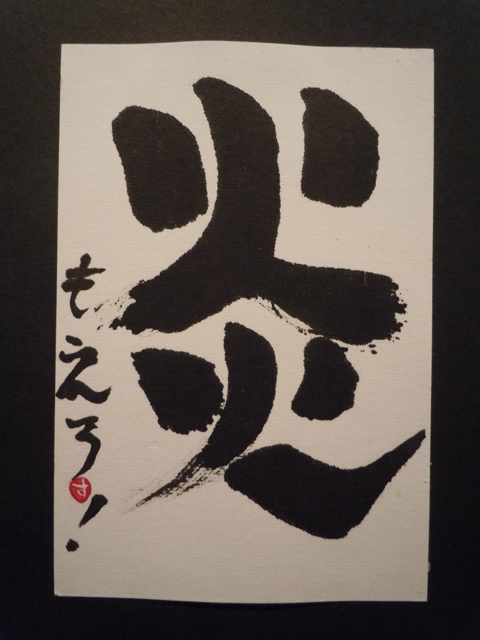 炎
もえろ!
す